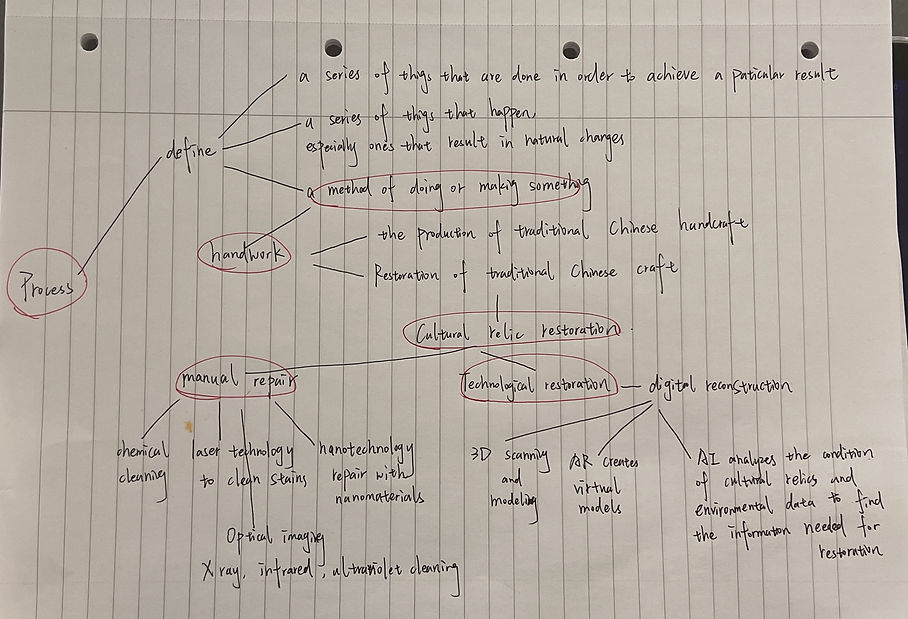 a series of thigs that are done in order to achieve a paticular result
a series of thigs that happen,
especially ones that result in natural changes
define
a method of doing or making something
the production of traditional Chinese handcraft
handwork
Restoration of traditional Chinese craft
Process
Cultural relic restoration
manual repair
Technological restoration
digital reconstruction
chemical
cleaning
laser technology
to clean stains
nanotechnology
repair with
nanomaterials
Optical imaging
X ray, infrared, ultraviolet cleaning
3D scanning
and
modeling
AR creates
virtual
models
AI analyzes the condition
of cultural relics and
environmental data to find
the information needed for
restoration